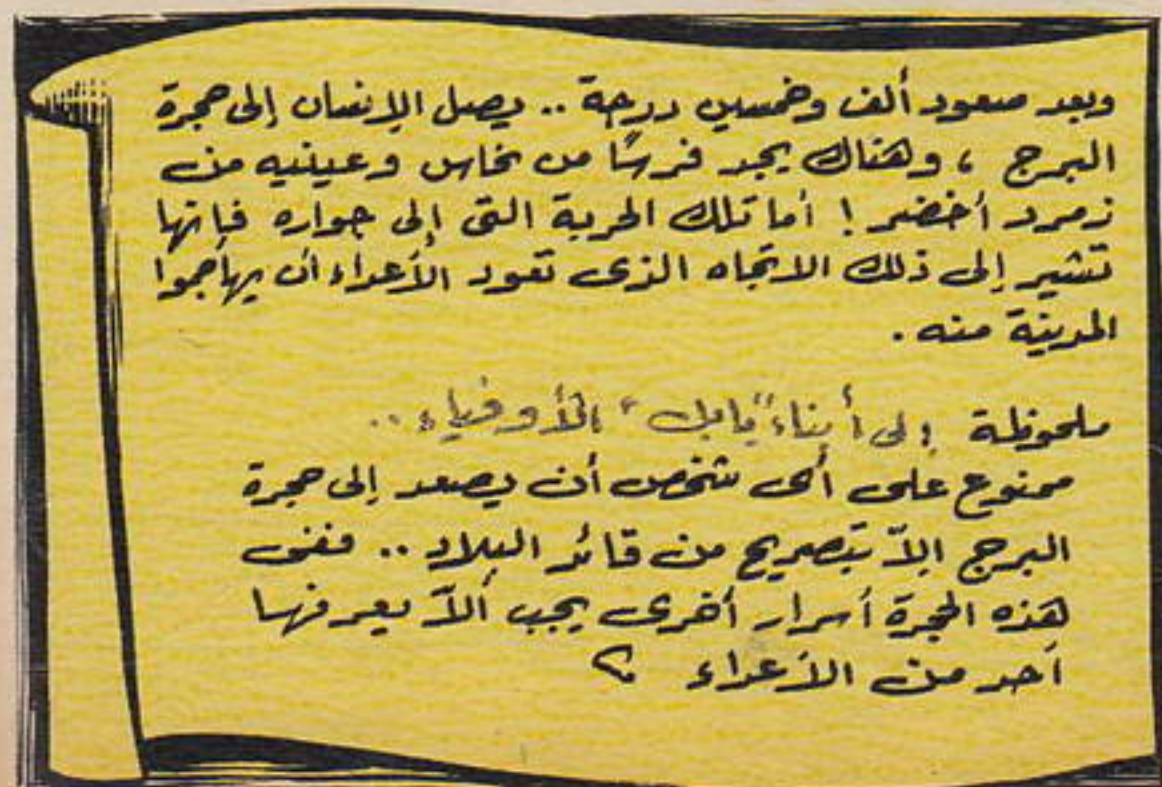 وبعد صعود ألف وخمسين درجة .. يصل الإنسان إلى حجرة
البرج ، وهناك يجد فرسًا من نحاس وعينيه من
زمرد أخضر ! أما تلك الحربة التى إلى جواره فإنها
تشير إلى ذلك الاتجاه الذى تعود الأعداء أن يهاجموا
المدينة منه .
ملحوظة إلى أبناء "بابل" الأوفياء ..
ممنوع على أى شخص أن يصعد إلى حجرة
البرج إلاّ بتصريح من قائد البلاد .. ففى
هذه الحجرة أسرار أخرى يجب ألاّ يعرفها
أحد من الأعداء